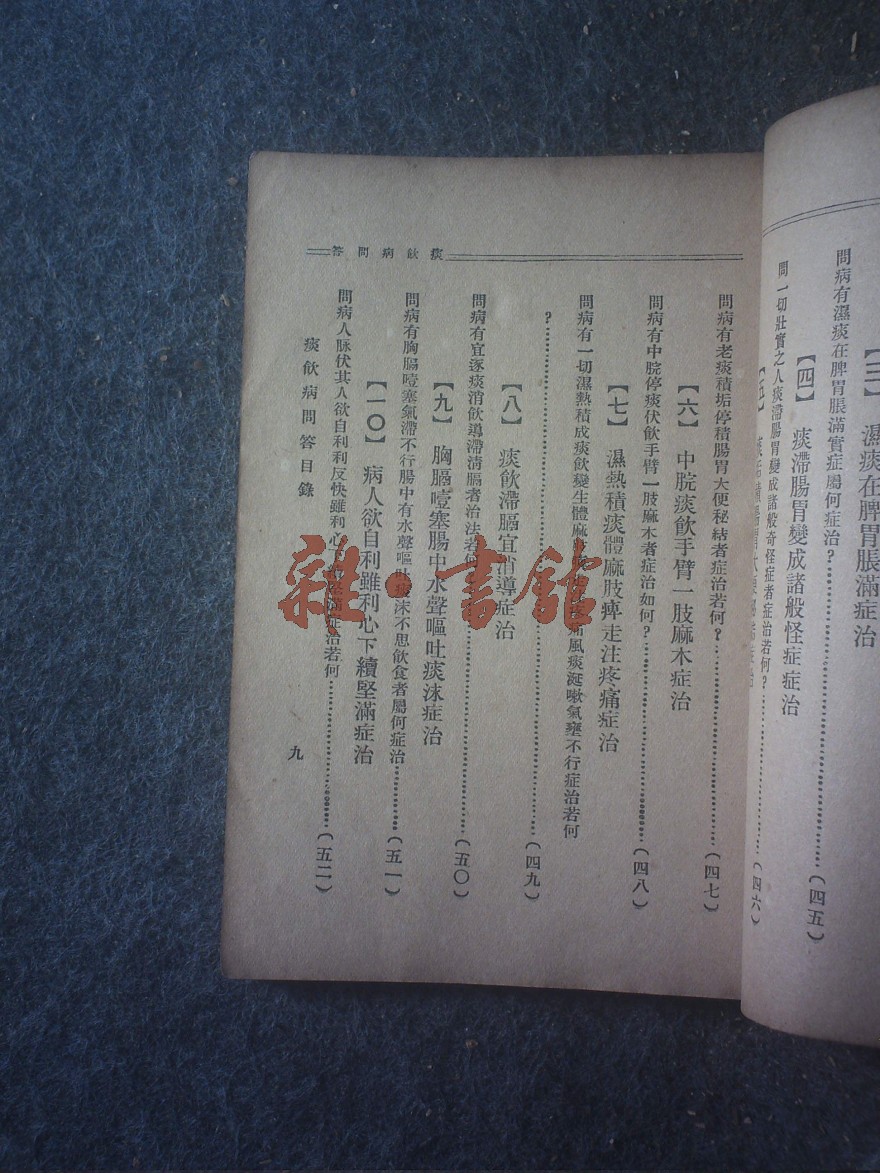 【三】　濕痰在脾胃脹滿症治
問病有濕痰在脾胃脹滿實症屬何症治？……(四五)
【四】　痰滯腸胃變成諸般怪症症治
問一切壯實之人痰滯腸胃變成諸般奇怪症者症治若何？……(四六)
【五】
痰飲病問答
問病有老痰積垢停積腸胃大便秘結者症治若何？……(四七)
【六】　中脘痰飲手臂一肢麻木症治
問病有中脘停痰伏飲手臂一肢麻木者症治如何？……(四八)
【七】　濕熱積痰體麻肢痺走注疼痛症治
問病有一切濕熱積成痰飲變生體麻痛風痰涎嗽氣壅不行症治若何
？……(四九)
【八】　痰飲滯膈宜消導症治
問病有宜逐痰消飲導滯清膈者治法若何……(五〇)
【九】　胸膈噎塞腸中水聲嘔吐痰沫症治
問病有胸膈噎塞氣滯不行腸中有水聲嘔吐痰沫不思飲食者屬何症治……(五一)
【一〇】　病人欲自利雖利心下續堅滿症治
問病人脉伏其人欲自利利反快雖利心下續堅滿症治若何……(五二)
痰飲病問答目錄
九
雜·書館